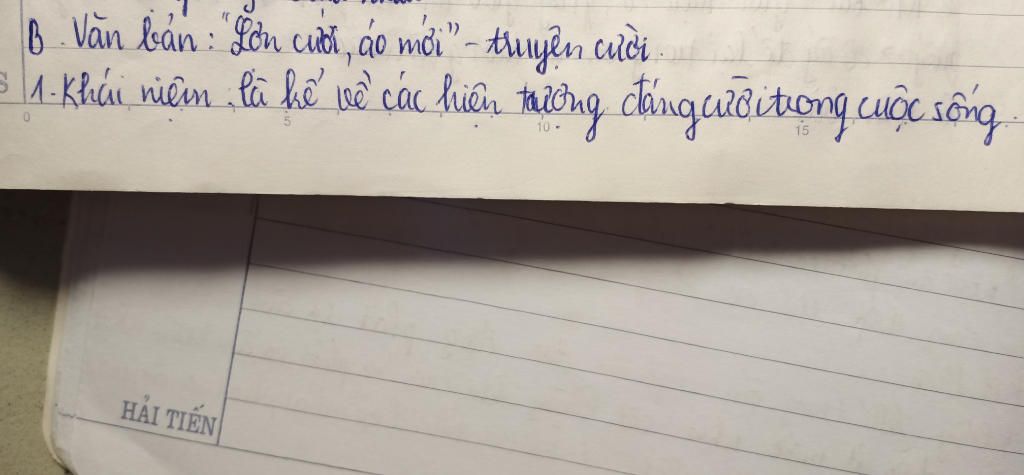 B. Văn bản: "Lợn cưới, áo mới" - truyện cười.
1. Khái niệm: là kể về các hiện tượng đáng cười trong cuộc sống.
0 5 10 15
HẢI TIẾN